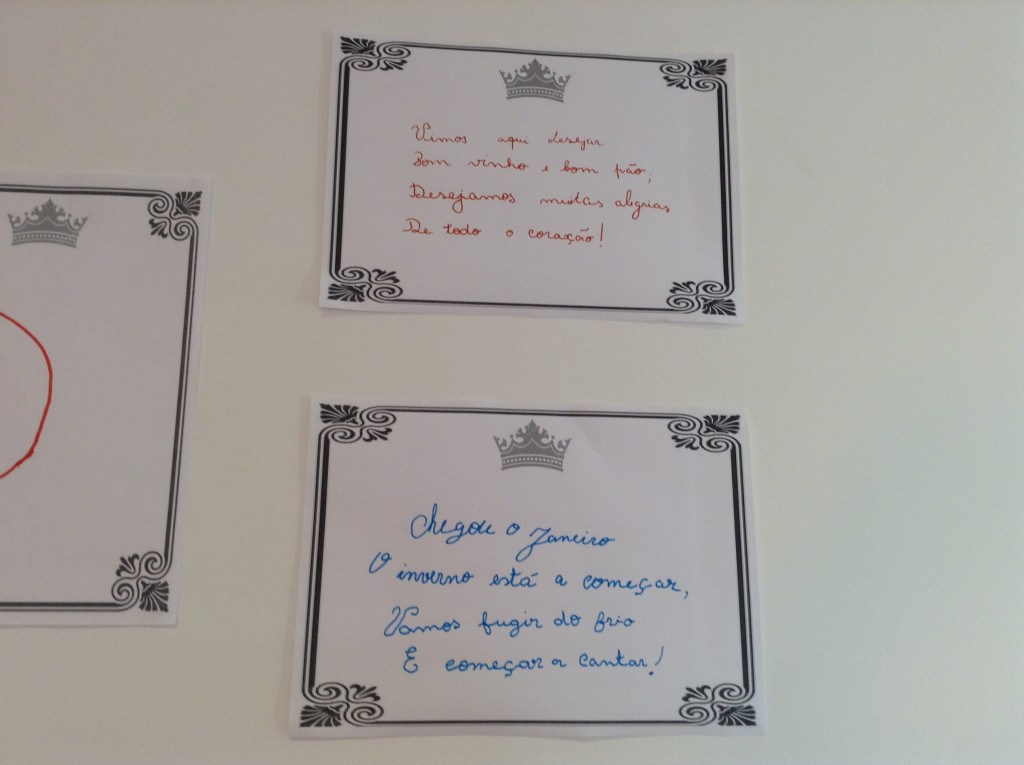 Vimos aqui desejar
Bom vinho e bom pão,
Desejamos muitas alegrias
De todo o coração!
Chegou o Janeiro
O inverno está a começar,
Vamos fugir do frio
E começar a cantar!